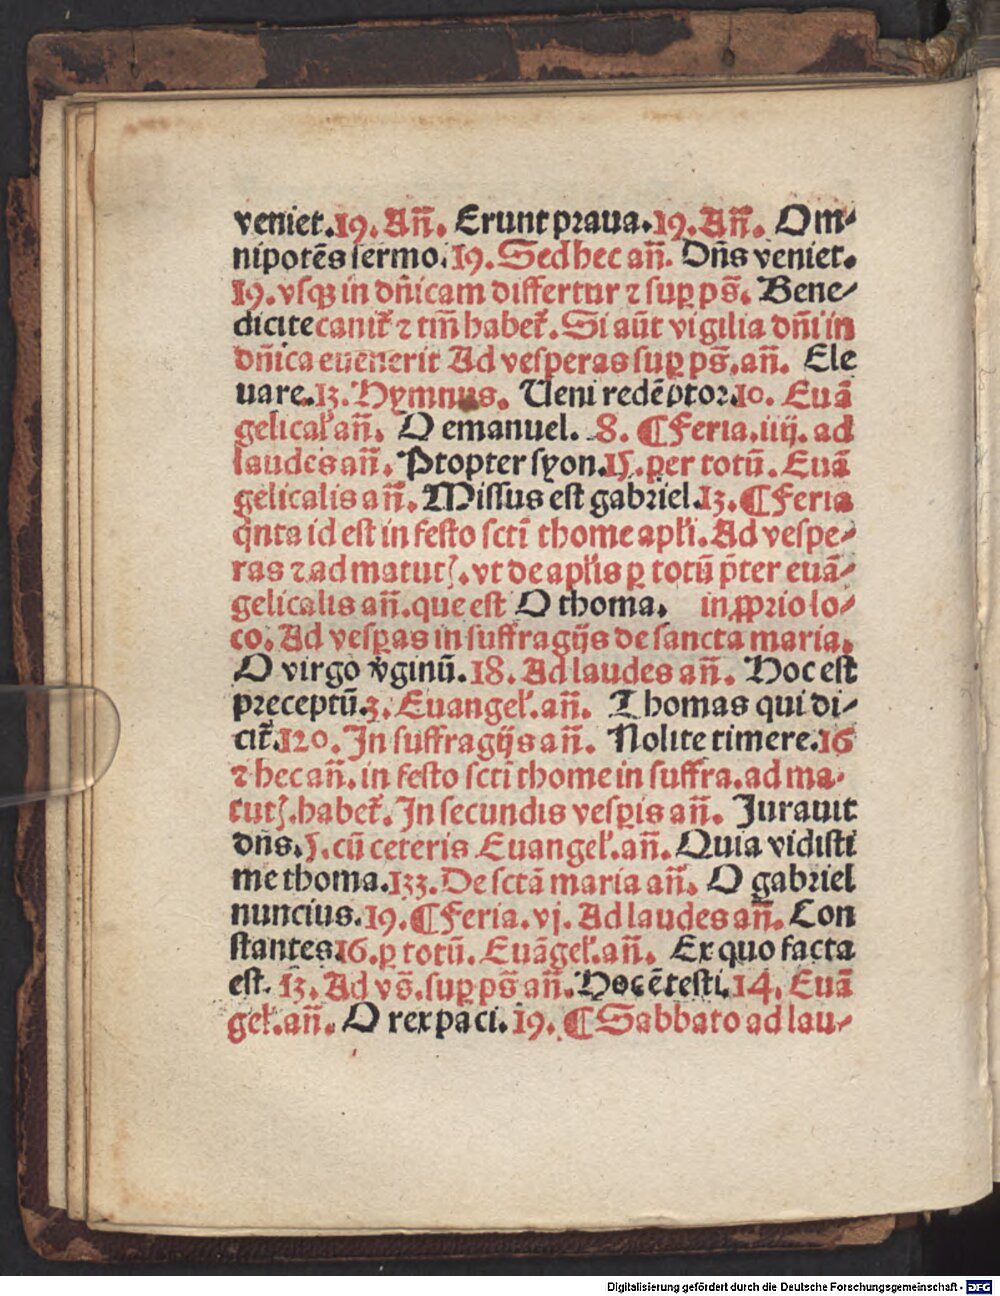 veniet.19. Añ. Erunt praua.19. Añ. Om⸗
nipotēs sermo.19. Sed hec añ. Dñs veniet.
19. vsqꝫ in dñicam differtur ⁊ suꝑ ps̄. Bene⸗
dicite canit᷑ ⁊ tm̄ habet᷑. Si aūt vigilia dñi in
dñica euenerit Ad vesperas suꝑ ps̄. añ. Ele
uare.13. Hymnus. Ueni redēptor.10. Euā
gelical᷑ añ. O emanuel. 8. ¶Feria.iiij. ad
laudes añ. Propter syon.15. per totū. Euā
gelicalis añ. Missus est gabriel.13. ¶Feria
qnta id est in festo scti̅ thome apl̄i. Ad vespe⸗
ras ⁊ ad matutꝭ. vt de apl̄is ꝑ totū p̄ter euā⸗
gelicalis añ. que est O thoma. in ꝓprio lo⸗
co. Ad vesꝑas in suffragijs de sancta maria.
O virgo v̄ginū.18. Ad laudes añ. Hoc est
preceptū.3. Euangel᷑. añ. Thomas qui di⸗
cit᷑.120. In suffragijs añ. Nolite timere.16
⁊ hec añ. in festo scti thome in suffra. ad ma⸗
tutꝭ. habet᷑. In secundis vesꝑis añ. Jurauit
dñs.5. cū ceteris Euangel᷑. añ. Quia vidisti
me thoma.133. De sctā maria añ. O gabriel
nuncius.19. ¶Feria. vj. Ad laudes añ. Con
stantes.16. ꝑ totū. Euāgel᷑. añ. Ex quo facta
est. 13. Ad vs̄. suꝑ ps̄ añ. Hoc ē testi.14. Euā
gel᷑. añ. O rex paci.19. ¶Sabbato ad lau⸗
Digitalisierung gefördert durch die Deutsche Forschungsgemeinschaft - DFG